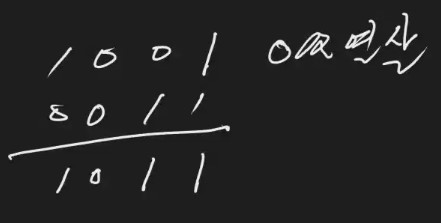 1 0 0 1 OR 연산
0 0 1 1
1 0 1 1